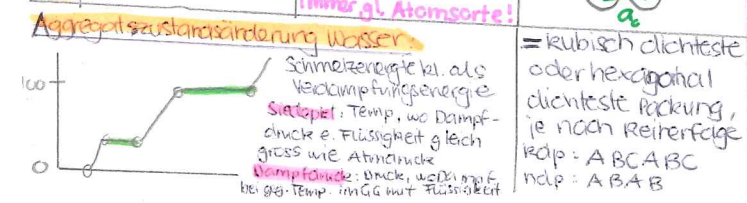 Immer gl. Atomsorte!
Aggregatszustandsänderung Wasser:
100
0
Schmelzenergie kl. als
Verdampfungsenergie
Siedepkt: Temp, wo Dampf-
drucke e. Flüssigkeit gleich
gross wie Atmdrucke
Dampfdruck: Druck, Dampf
bei geg. Temp. im GG mit Flüssigkeit
= kubisch dichteste
oder hexagonal
dichteste Packung,
je nach Reihenfolge
kdp: ABCABC
hdp: ABAB